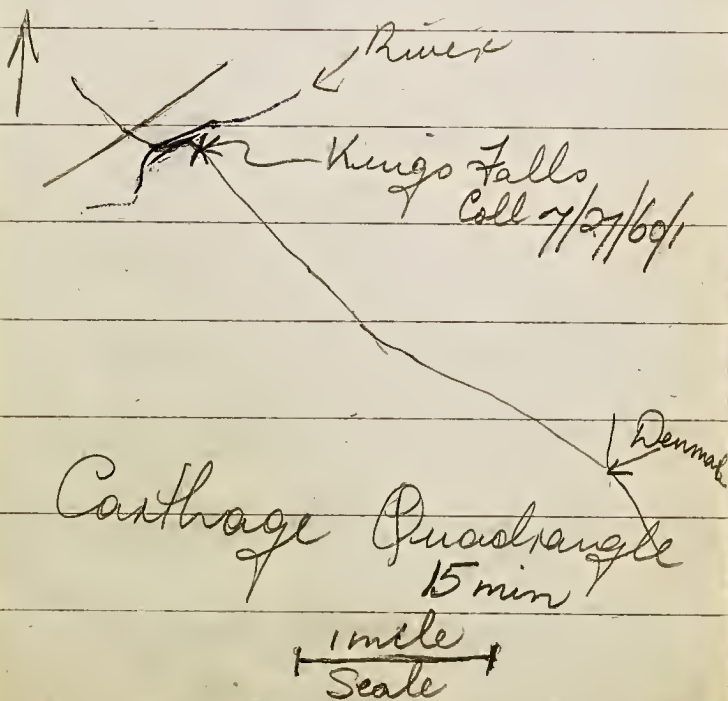 River
Kings Falls
Coll 7/27/60/1
Denmark
Carthage Quadrangle
15 min
1 mile
Scale